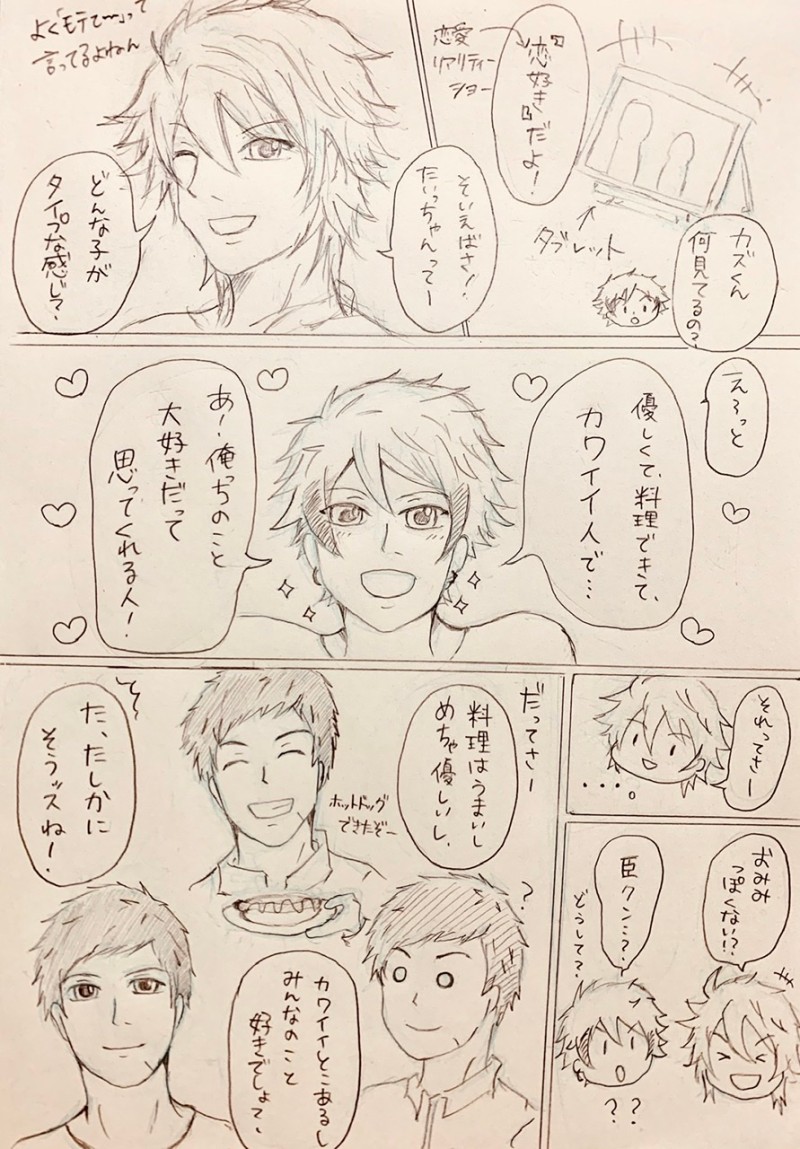 カズくん
何見てるの？
タブレット
『恋好き』だよ！
恋愛
リアリティー
ショー
そいえばさ！
たいっちゃんってー
よく「モテて〜」って
言ってるよねん
どんな子が
タイプな感じ？
えーっと
優しくて、料理できて、
カワイイ人で…
あー俺っちのこと
大好きだって
思ってくれる人！
それってさー
…。
おみみ
っぽくない！？
臣クン…？
どうして？
？？
だってさー
料理はうまいし
めちゃ優しいし、
ホットドッグ
できたぞー
？
カワイイとこあるし
みんなのこと
好きでしょて、
た、たしかに
そうッスね！